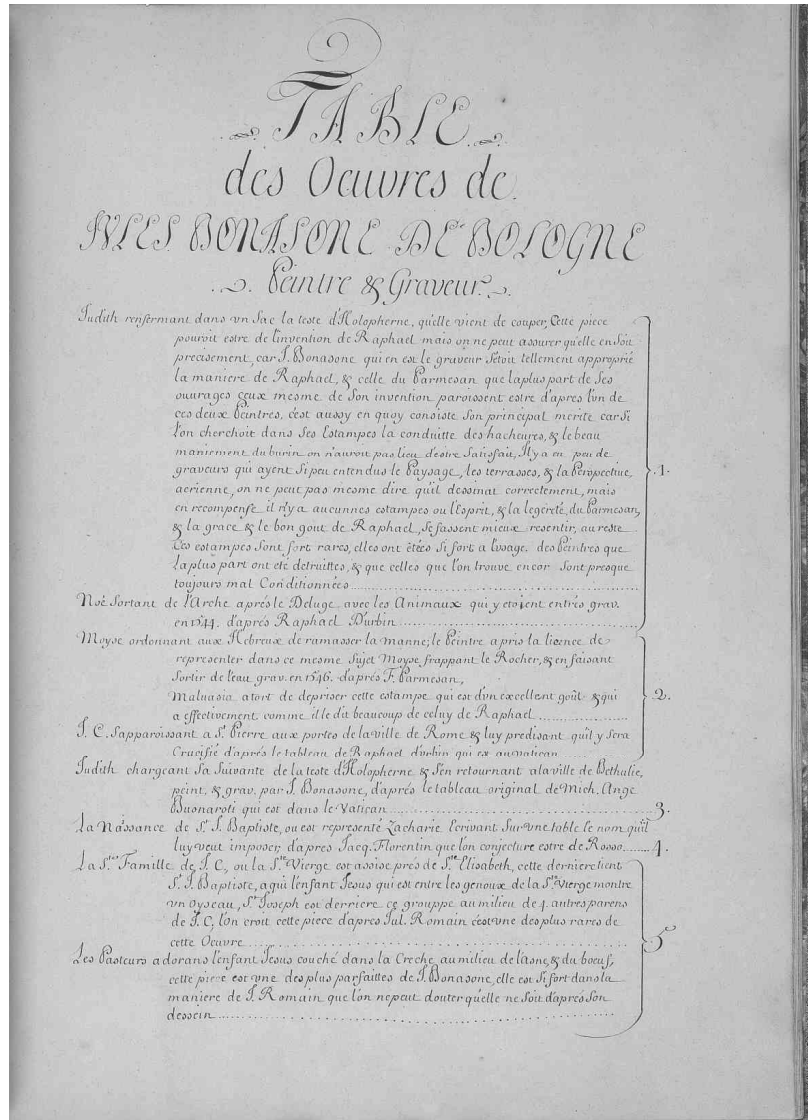 TABLE
des Oeuvres de
JULES BONASONE DE BOLOGNE
Peintre & Graveur.
Judith renfermant dans vn Sac la teste d'Holopherne, qu'elle vient de couper, Cette piece
pouroit estre de l'invention de Raphael mais on ne peut assurer qu'elle en Soit
precisement, car J. Bonasone qui en est le graveur S'étoit tellement approprié
la maniere de Raphael, & celle du Parmesan que la plus part de Ses
ouvrages ceux mesme de Son invention paroissent estre d'après l'un de
ces deux Peintres, c'est aussy en quoy consiste Son principal merite car Si
l'on cherchoit dans Ses Estampes la conduitte des hacheures, & le beau
maniement du burin on n'auroit pas lieu d'estre Satisfait, Il y a eu peu de
graveurs qui ayent Si peu entendus le Paysage, les terrasses, & la Perspective
aerienne, on ne peut pas mesme dire qu'il dessinat correctement, mais
en recompense il n'y a aucunnes estampes ou l'Esprit, & la legereté, du Parmesan,
& la grace & le bon gout de Raphael, Se fassent mieux resentir, au reste
Ces estampes Sont fort rares, elles ont étées Si fort a l'usage des Peintres que
la plus part ont été detruittes, & que celles que l'on trouve encor Sont presque
toujours mal Conditionnées .1.
Noë Sortant de l'Arche aprés le Deluge avec les Animaux qui y etoient entrés grav.
en 1544. d'aprés Raphael D'urbin
Moyse ordonnant aux Hebreux de ramasser la manne; le Peintre a pris la licence de
representer dans ce mesme Sujet Moyse frappant le Rocher, & en faisant
Sortir de l'eau grav. en 1546. d'aprés F. Parmesan,
Malvasia a tort de depriser cette estampe qui est d'un excellent goût & qui 2.
a effectivement comme il le dit beaucoup de celuy de Raphael
J. C. S'apparoissant a St. Pierre aux portes de la ville de Rome & luy predisant qu'il y Sera
Crucifié d'aprés le tableau de Raphael d'urbin qui est au vatican
Judith chargeant Sa Suivante de la teste d'Holopherne & S'en retournant a la ville de Bethulie,
peint, & grav. par J. Bonasone, d'aprés le tableau original de Mich. Ange
Buonaroti qui est dans le Vatican 3.
La Naissance de St. J. Baptiste, ou est representé Zacharie Ecrivant Sur vne table le nom qu'il
luy veut imposer, d'apres Jacq. Florentin que l'on conjecture estre de Rosso 4.
La Ste Famille de J. C., ou la Ste Vierge est assise prés de Ste Elisabeth, cette derniere tient
St. J. Baptiste, a qui l'enfant Jesus qui est entre les genoux de la Ste Vierge montre
vn Oyseau, St. Joseph est derriere ce grouppe au milieu de 4. autres parens
de J. C, l'on croit cette piece d'apres Jul. Romain c'est vne des plus rares de
cette Oeuvre 5
Les Pasteurs adorans l'enfant Jesus couché dans la Creche au milieu de l'asne, & du boeuf,
cette piece est vne des plus parfaittes de J. Bonasone, elle est Si fort dans la
maniere de J. Romain que l'on ne peut douter qu'elle ne Soit d'aprés Son
dessein